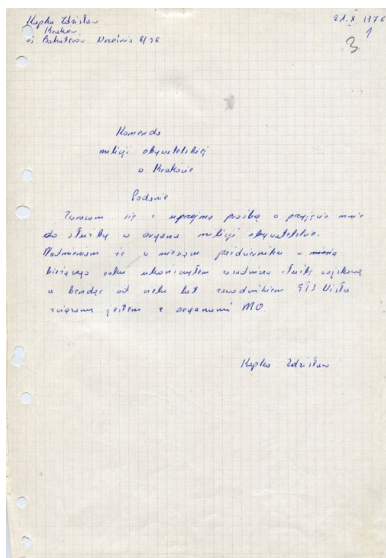 Kapka Zdzisław
Kraków
os. Bohaterów Września 8/36
21.X 1976
1
3
Komenda
milicji obywatelskiej
w Krakowie
Podanie
Zwracam się z uprzejmą prośbą o przyjęcie mnie
do służby w organa milicji obywatelskiej.
Nadmieniam że w miesiącu październiku
bieżącego roku ukończyłem zasadniczą służbę wojskową
a bendąc od wielu lat zawodnikiem GTS Wisła
związany jestem z organami MO
Kapka Zdzisław